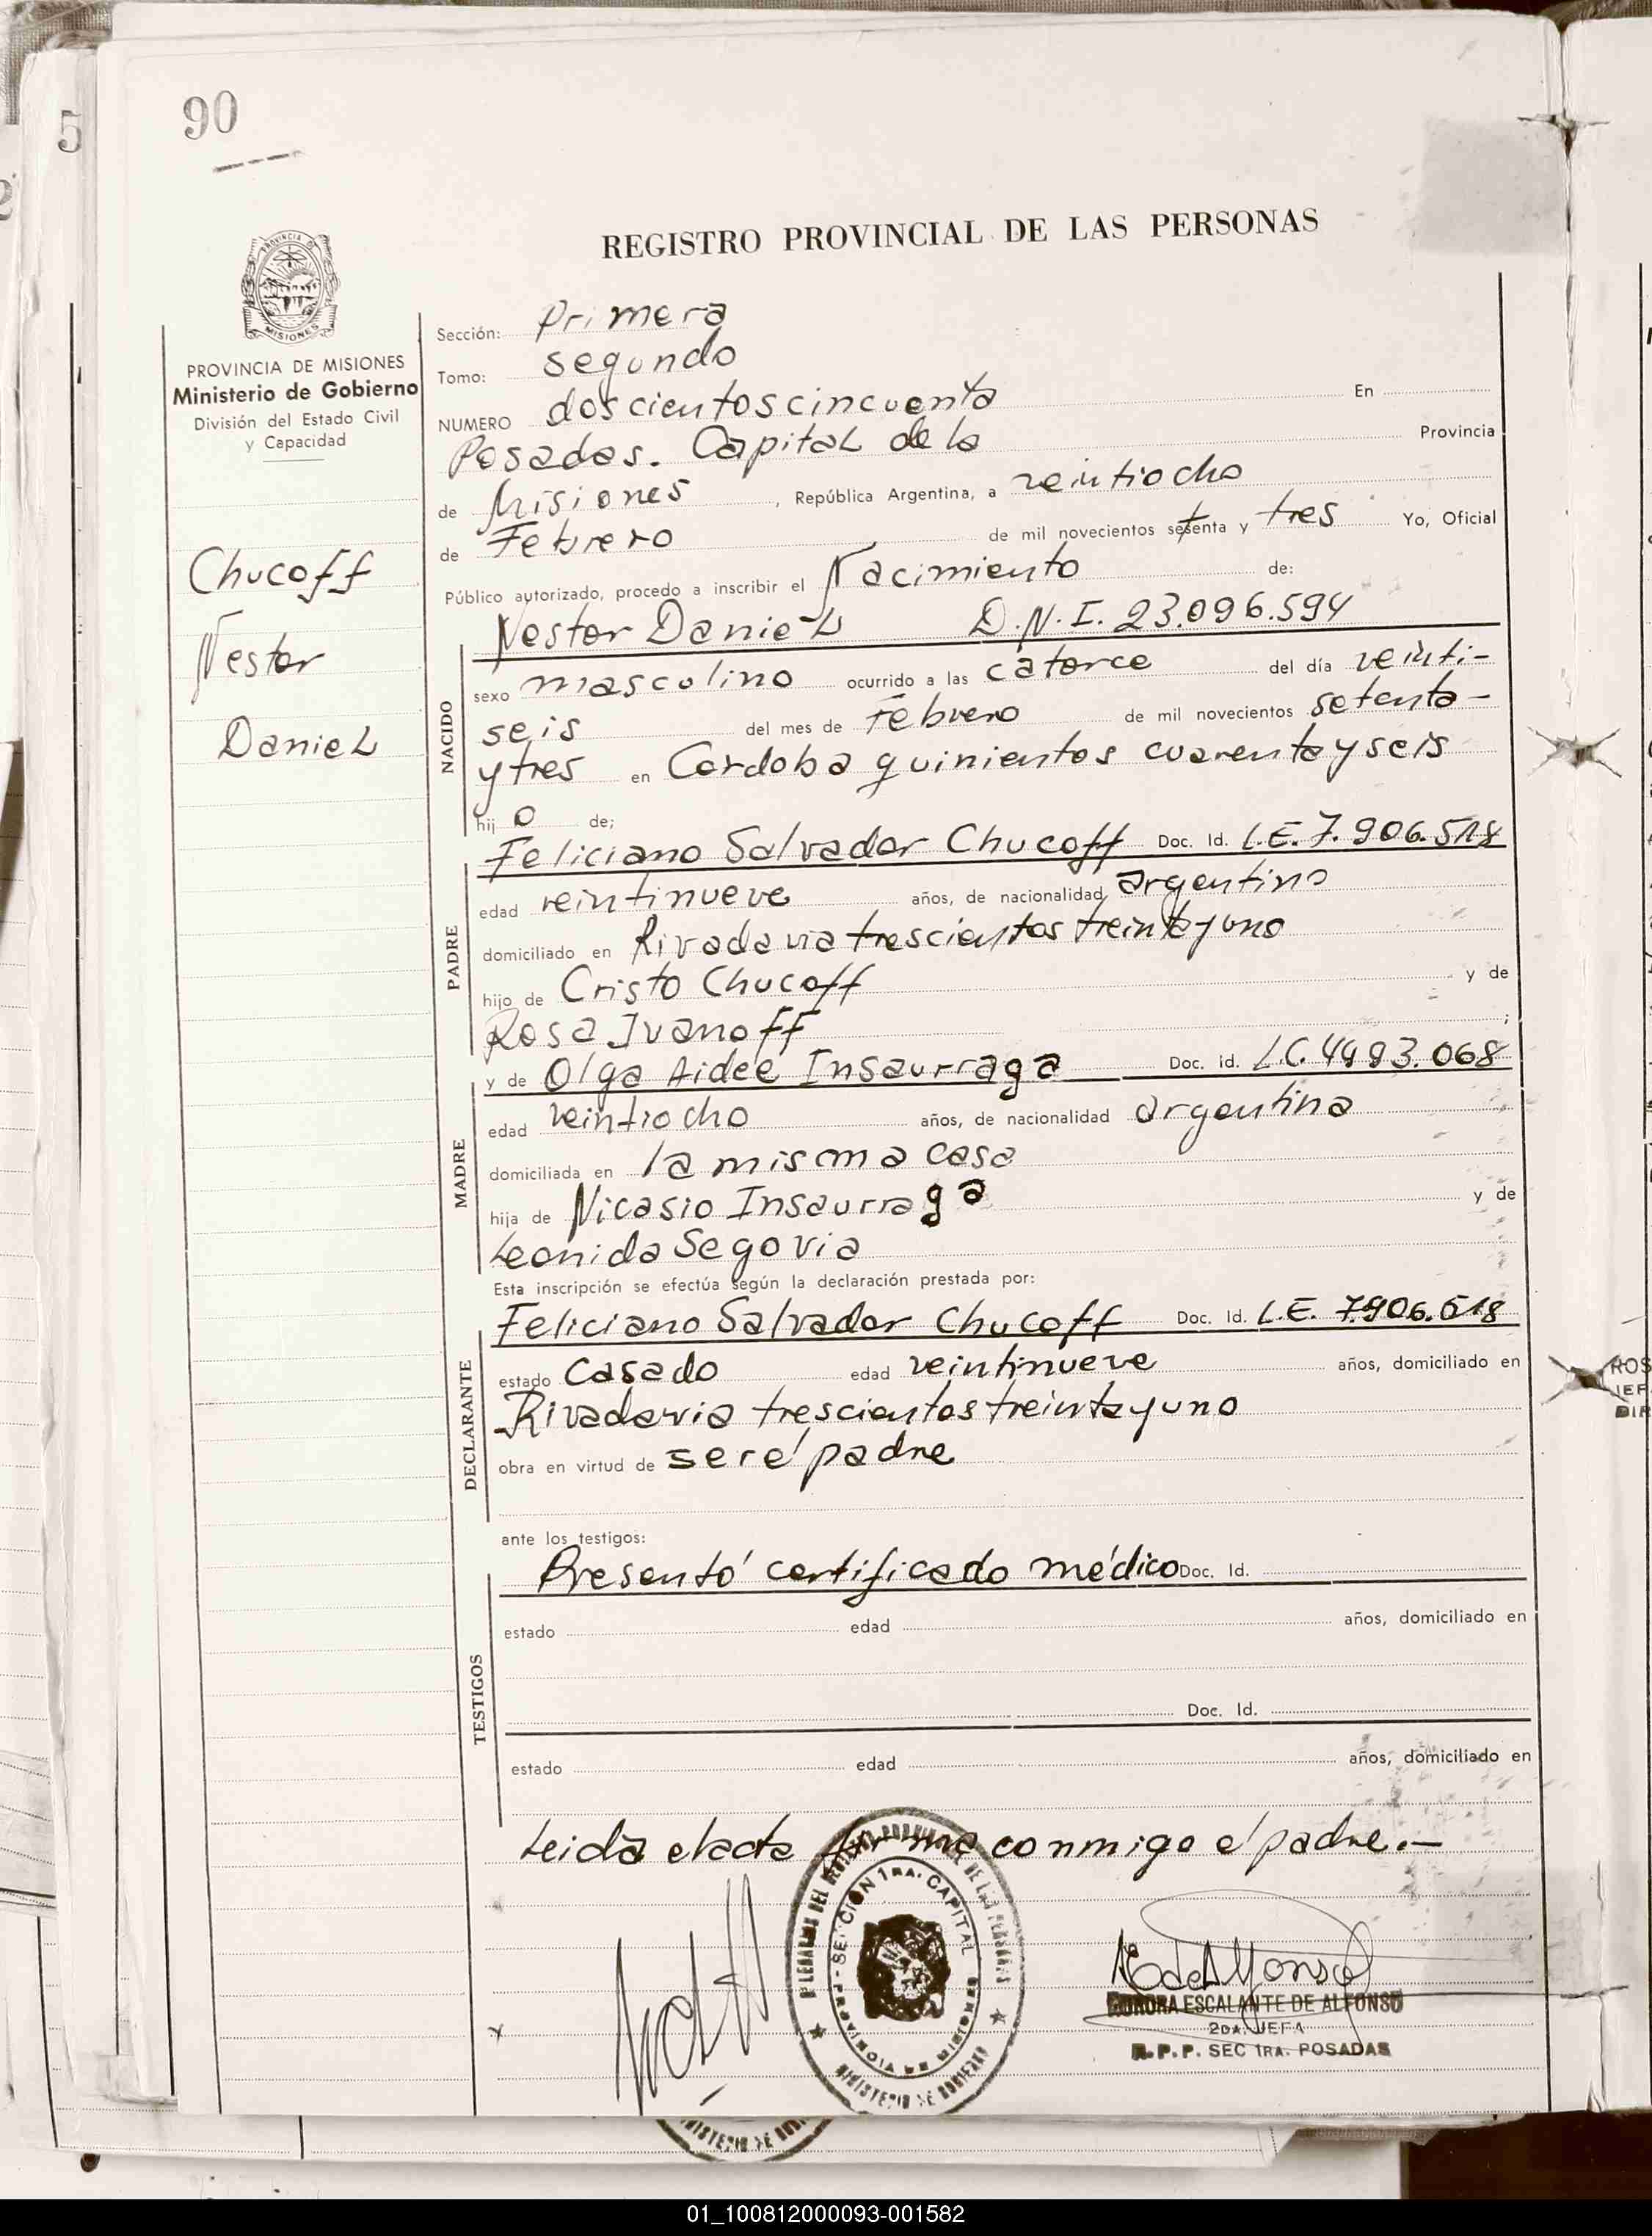 90
5
REGISTRO PROVINCIAL DE LAS PERSONAS
PROVINCIA DE MISIONES
Ministerio de Gobierno
División del Estado Civil
y Capacidad
Chucoff
Nestor
Daniel
Sección: Primera
Tomo: segundo
NUMERO doscientos cincuenta En
Posadas. Capital de la Provincia
de Misiones, República Argentina, a veintiocho
de Febrero de mil novecientos setenta y tres Yo, Oficial
Público autorizado, procedo a inscribir el Nacimiento de:
Nestor Daniel D.N.I. 23.096.594
NACIDO
sexo masculino ocurrido a las catorce del día veinti-
seis del mes de Febrero de mil novecientos setenta-
y tres en Cordoba quinientos cuarenta y seis
hij o de;
Feliciano Salvador Chucoff Doc. Id. L.E. 7.906.518
PADRE
edad veintinueve años, de nacionalidad argentina
domiciliado en Rivadavia trescientos treinta y uno
hijo de Cristo Chucoff y de
Rosa Ivanoff ;
y de Olga Aidée Insaurraga Doc. id. L.C. 4493.068
MADRE
edad veintiocho años, de nacionalidad argentina
domiciliada en la misma casa
hija de Nicasio Insaurraga y de
Leonida Segovia
Esta inscripción se efectúa según la declaración prestada por:
Feliciano Salvador Chucoff Doc. Id. L.E. 7.906.518
DECLARANTE
estado casado edad veintinueve años, domiciliado en
Rivadavia trescientos treinta y uno
obra en virtud de ser el padre
ante los testigos:
Presentó certificado médico Doc. Id.
TESTIGOS
estado edad años, domiciliado en
Doc. Id.
estado edad años, domiciliado en
Leida el acta firma conmigo el padre.-
REGISTRO PROVINCIAL DE LAS PERSONAS
SECCION 1RA. CAPITAL
PROVINCIA DE MISIONES
MINISTERIO DE GOBIERNO
AURORA ESCALANTE DE ALFONSO
2DA. JEFA
R.P.P. SEC 1RA. POSADAS
01_100812000093-001582